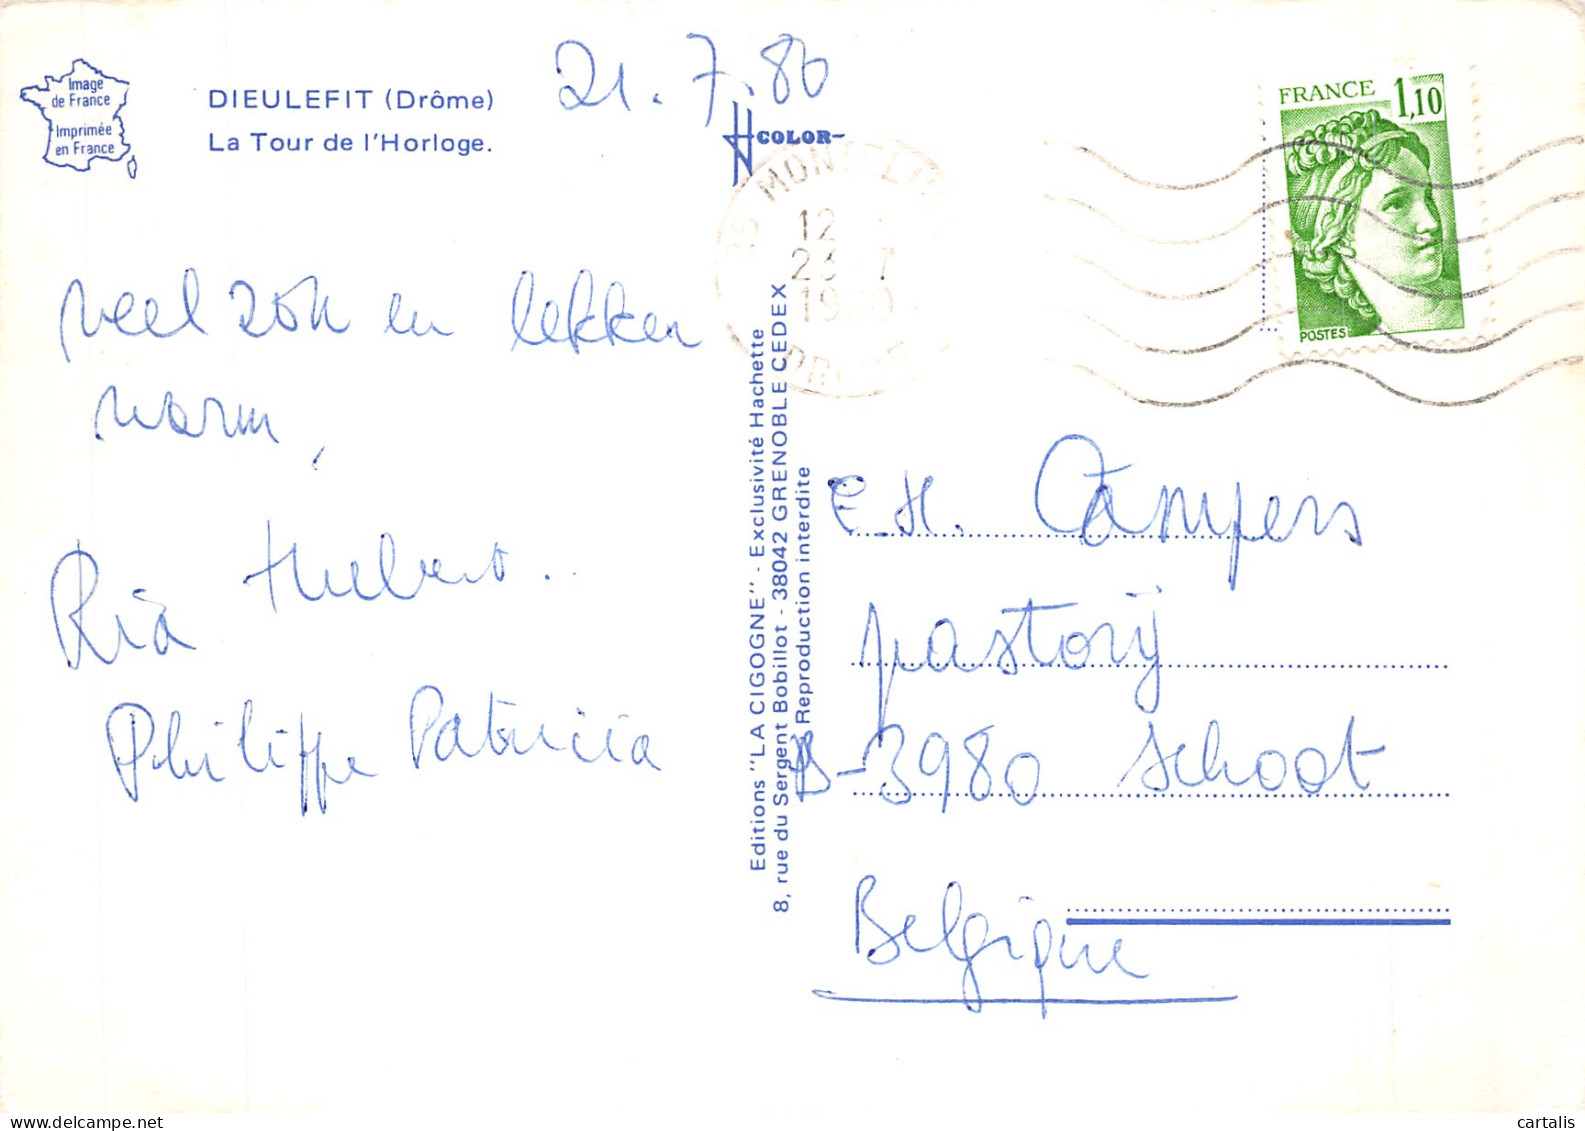 Image
de France
Imprimée
en France
DIEULEFIT (Drôme)
La Tour de l'Horloge.
21.7.80
COLOR
FRANCE 1,10
POSTES
12
23 7
veel zon en lekker
warm,
Ria Hubert.
Philippe Patricia
Editions "LA CIGOGNE" - Exclusivité Hachette
8, rue du Sergent Bobillot - 38042 GRENOBLE CEDEX
Reproduction interdite
E.H. Campers
pastorij
B-3980 Schoot
Belgique
delcampe.net
cartalis